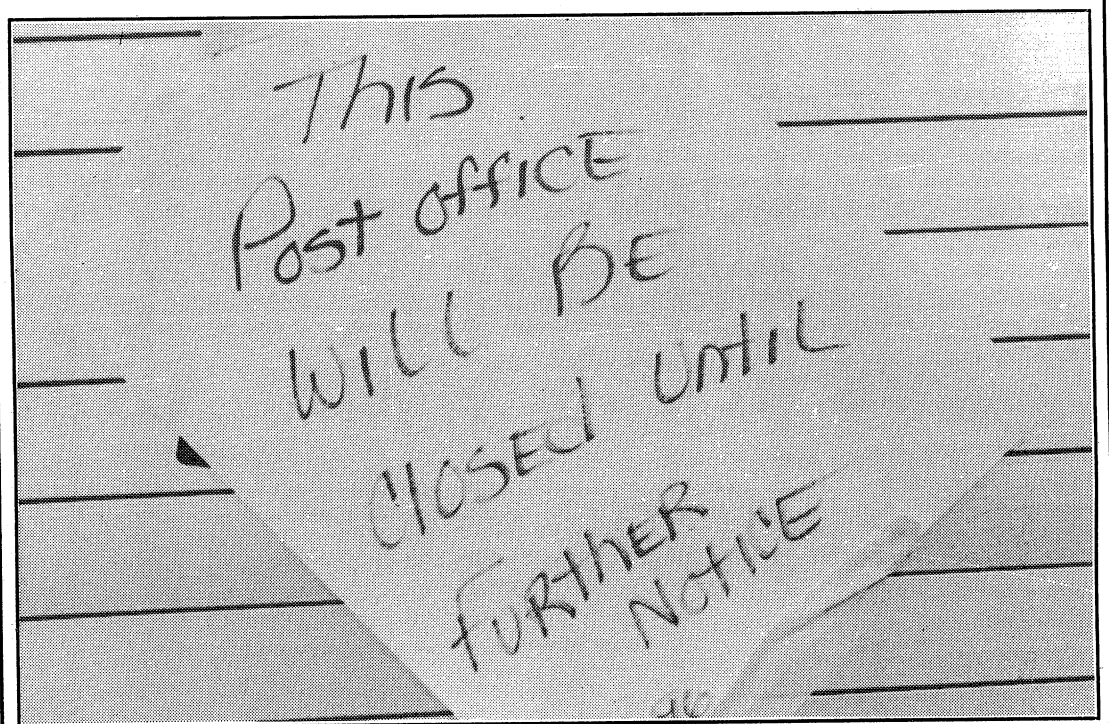 This
Post office
Will BE
Closed Until
FURthER
NotiCE